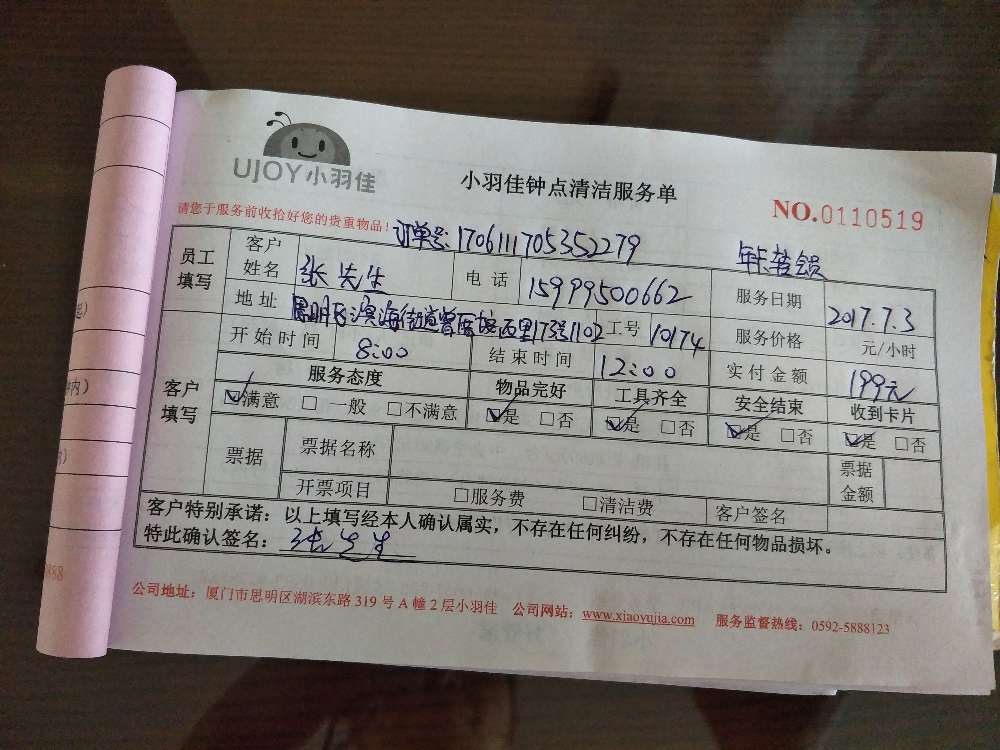 UJOY小羽佳
小羽佳钟点清洁服务单
NO.0110519
请您于服务前收拾好您的贵重物品!
订单号:1706111705352279
年卡
员工填写 客户姓名 张先生 电话 15999500662 服务日期 2017.7.3
地址 思明区滨海街道曾厝垵西里173号1102 工号 10174 服务价格 元/小时
开始时间 8:00 结束时间 12:00 实付金额 199元
客户填写 服务态度 物品完好 工具齐全 安全结束 收到卡片
☑满意 □一般 □不满意 ☑是 □否 ☑是 □否 ☑是 □否 ☑是 □否
票据 票据名称 票据金额
开票项目 □服务费 □清洁费 客户签名
客户特别承诺:以上填写经本人确认属实,不存在任何纠纷,不存在任何物品损坏。
特此确认签名: 张先生
公司地址:厦门市思明区湖滨东路319号A幢2层小羽佳 公司网站:www.xiaoyujia.com 服务监督热线:0592-5888123